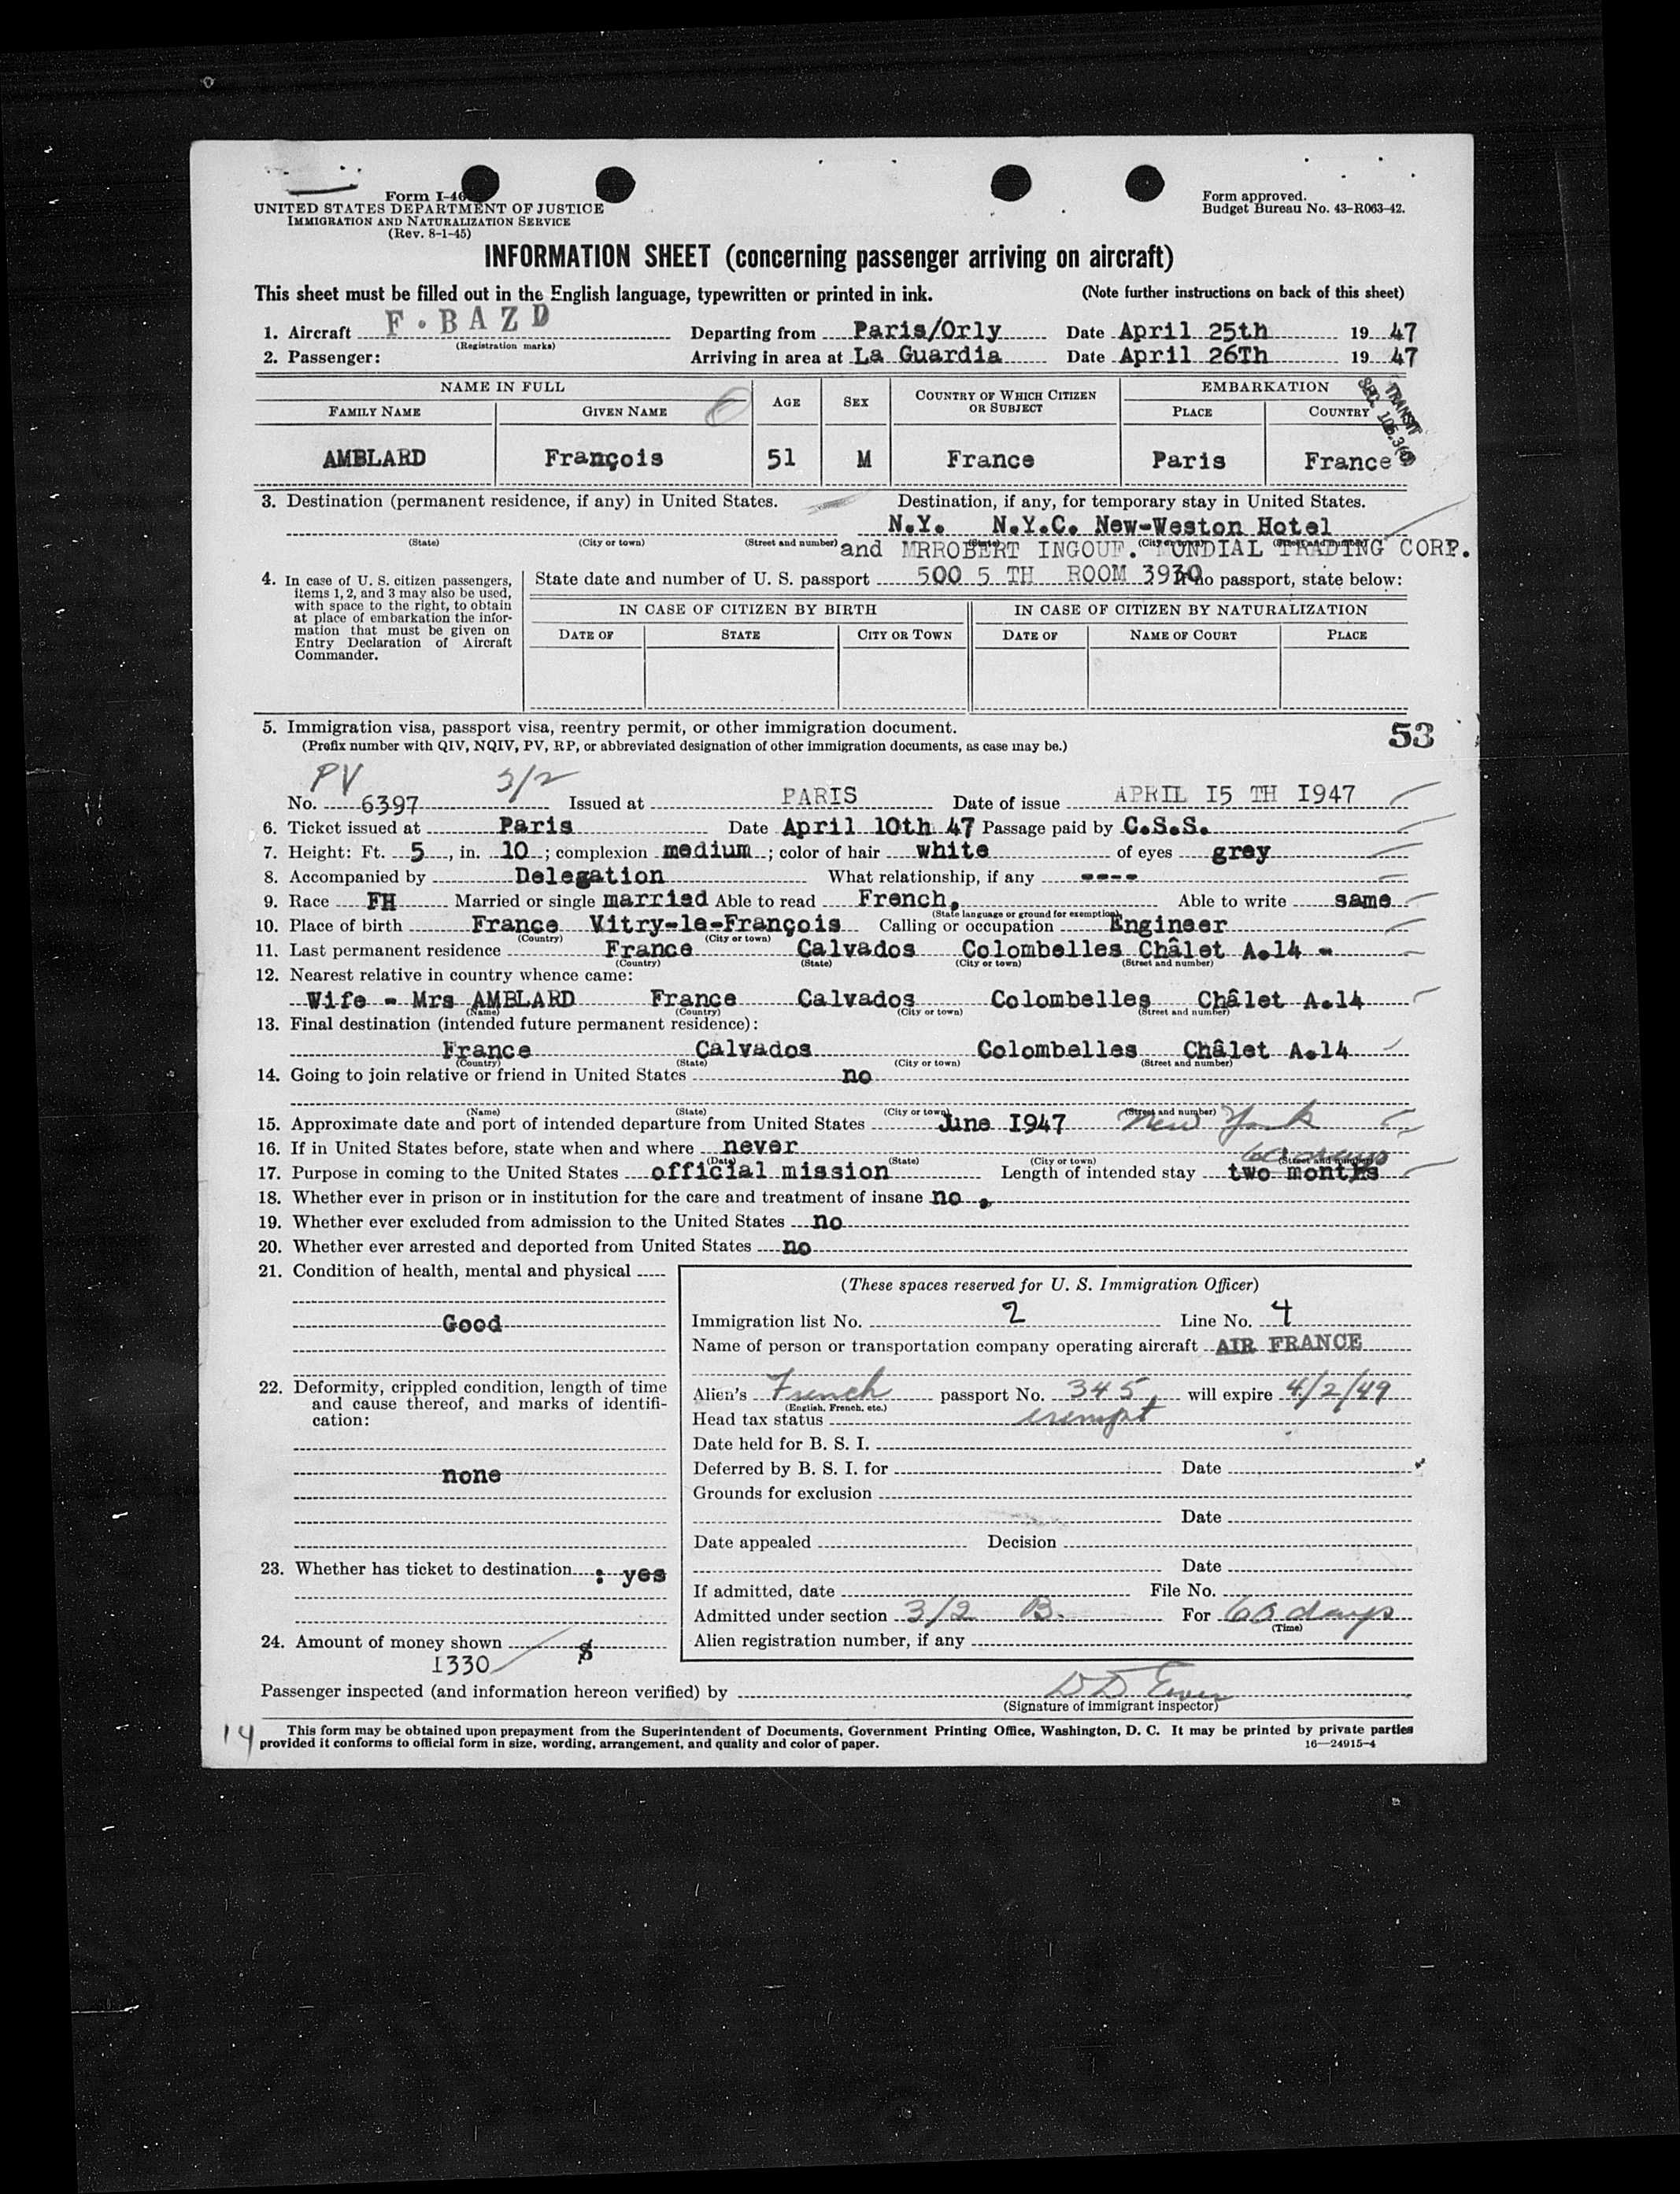 Form I-40
UNITED STATES DEPARTMENT OF JUSTICE
IMMIGRATION AND NATURALIZATION SERVICE
(Rev. 8-1-45)
Form approved.
Budget Bureau No. 43-R063-42.
INFORMATION SHEET (concerning passenger arriving on aircraft)
This sheet must be filled out in the English language, typewritten or printed in ink. (Note further instructions on back of this sheet)
1. Aircraft F.BAZD Departing from Paris/Orly Date April 25th 19 47
(Registration marks)
2. Passenger: Arriving in area at La Guardia Date April 26Th 19 47
NAME IN FULL AGE SEX COUNTRY OF WHICH CITIZEN OR SUBJECT EMBARKATION
FAMILY NAME GIVEN NAME PLACE COUNTRY
TRANSIT
SEC. 105.3(6)
AMBLARD François 51 M France Paris France
3. Destination (permanent residence, if any) in United States. Destination, if any, for temporary stay in United States.
N.Y. N.Y.C. New-Weston Hotel
(State) (City or town) (Street and number) (State) (City or town) (Street and number)
and MRROBERT INGOUF. MONDIAL TRADING CORP.
4. In case of U. S. citizen passengers, items 1, 2, and 3 may also be used, with space to the right, to obtain at place of embarkation the information that must be given on Entry Declaration of Aircraft Commander.
State date and number of U. S. passport 500 5 TH ROOM 3930 If no passport, state below:
IN CASE OF CITIZEN BY BIRTH IN CASE OF CITIZEN BY NATURALIZATION
DATE OF STATE CITY OR TOWN DATE OF NAME OF COURT PLACE
5. Immigration visa, passport visa, reentry permit, or other immigration document. 53
(Prefix number with QIV, NQIV, PV, RP, or abbreviated designation of other immigration documents, as case may be.)
PV 3/2
No. 6397 Issued at PARIS Date of issue APRIL I5 TH I947
6. Ticket issued at Paris Date April 10th 47 Passage paid by C.S.S.
7. Height: Ft. 5, in. 10; complexion medium; color of hair white of eyes grey
8. Accompanied by Delegation What relationship, if any ----
9. Race FH Married or single married Able to read French, Able to write same
(State language or ground for exemption)
10. Place of birth France Vitry-le-François Calling or occupation Engineer
(Country) (City or town)
11. Last permanent residence France Calvados Colombelles Châlet A.14 -
(Country) (State) (City or town) (Street and number)
12. Nearest relative in country whence came:
Wife - Mrs AMBLARD France Calvados Colombelles Châlet A.14
(Name) (Country) (City or town) (Street and number)
13. Final destination (intended future permanent residence):
France Calvados Colombelles Châlet A.14
(Country) (State) (City or town) (Street and number)
14. Going to join relative or friend in United States no
(Name) (State) (City or town) (Street and number)
15. Approximate date and port of intended departure from United States June I947 New York
16. If in United States before, state when and where never
(Date) (State) (City or town) (Street and number)
60 days
17. Purpose in coming to the United States official mission Length of intended stay two months
18. Whether ever in prison or in institution for the care and treatment of insane no .
19. Whether ever excluded from admission to the United States no
20. Whether ever arrested and deported from United States no
21. Condition of health, mental and physical
Good
22. Deformity, crippled condition, length of time and cause thereof, and marks of identification:
none
23. Whether has ticket to destination : yes
24. Amount of money shown $
I330
(These spaces reserved for U. S. Immigration Officer)
Immigration list No. 2 Line No. 4
Name of person or transportation company operating aircraft AIR FRANCE
Alien's French passport No. 345, will expire 4/2/49
(English, French, etc.)
Head tax status exempt
Date held for B. S. I.
Deferred by B. S. I. for Date
Grounds for exclusion
Date
Date appealed Decision
Date
If admitted, date File No.
Admitted under section 3/2 B. For 60 days
(Time)
Alien registration number, if any
Passenger inspected (and information hereon verified) by
(Signature of immigrant inspector)
14
This form may be obtained upon prepayment from the Superintendent of Documents, Government Printing Office, Washington, D. C. It may be printed by private parties
provided it conforms to official form in size, wording, arrangement, and quality and color of paper. 16—24915-4